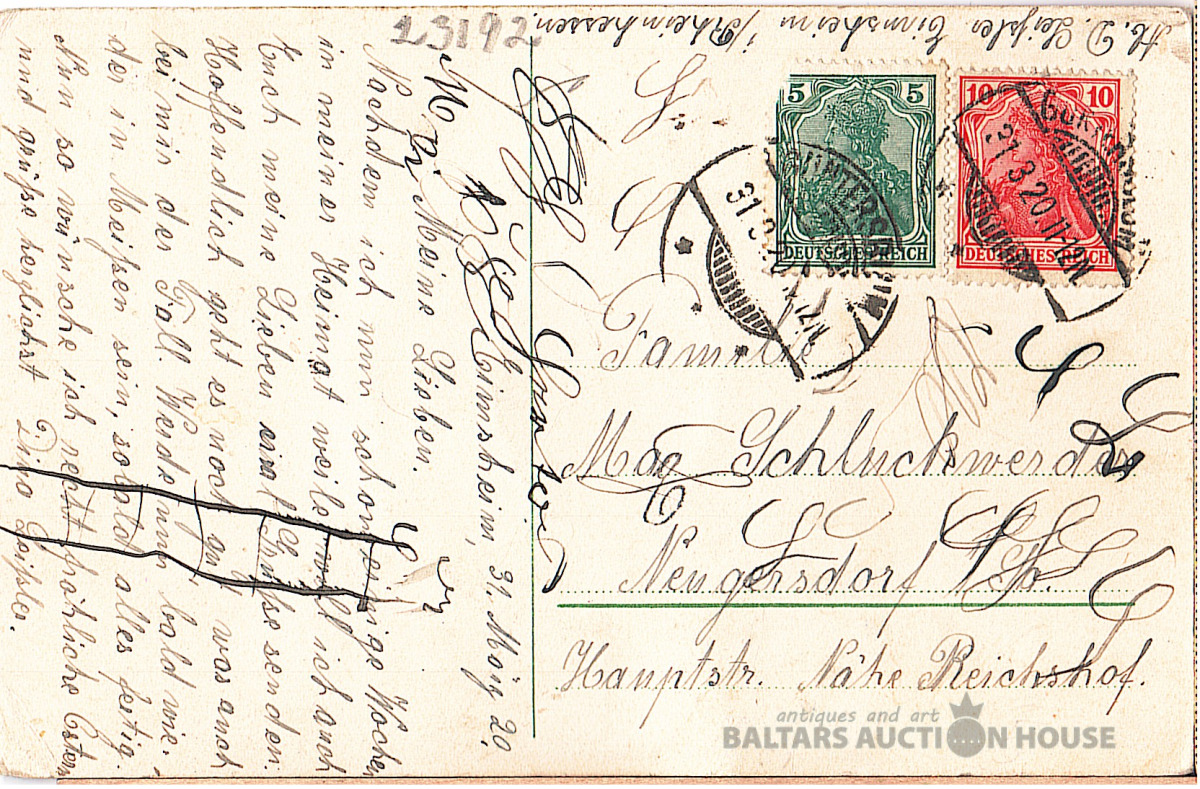 Abs. D. Leißler Eimsheim / Rheinhessen.
23192
5 5
DEUTSCHES REICH
10 10
DEUTSCHES REICH
31.3.20. 11-12N
GUNTERSBLUM
31.3.20 11-12N
Familie
Mag Schluckwerder
Neugersdorf / Sa.
Hauptstr. Nähe Reichshof.
Eimsheim, 31. März 20,
Meine Lieben.
Nachdem ich nun schon einige Wochen
in meiner Heimat weile, will ich auch
Euch meine Lieben mal Grüße senden.
Hoffendlich geht es noch gut, was auch
bei mir der Fall. Werde nun bald wie-
der in Meißen sein, sobald alles fertig.
Nun so wünsche ich recht fröhliche Ostern
und grüße herzlichst Dina Leißler.
antiques and art
BALTARS AUCTION HOUSE